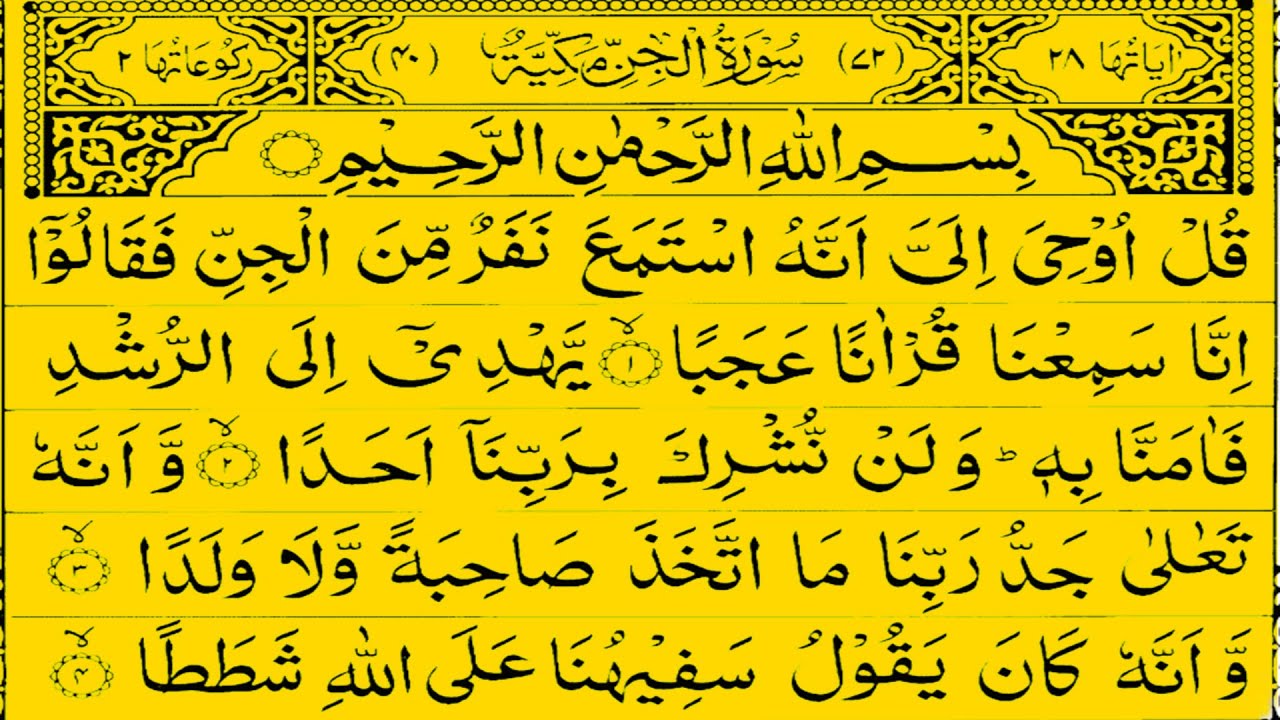 اٰیَاتُهَا ۲۸ (۷۲) سُوْرَةُ الْجِنِّ مَکِّیَّةٌ (۴۰) رُکُوْعَاتُهَا ۲
بِسْمِ اللّٰهِ الرَّحْمٰنِ الرَّحِیْمِ
قُلْ اُوْحِیَ اِلَیَّ اَنَّهُ اسْتَمَعَ نَفَرٌ مِّنَ الْجِنِّ فَقَالُوْۤا
اِنَّا سَمِعْنَا قُرْاٰنًا عَجَبًا ۙ﴿۱﴾ یَّهْدِیْۤ اِلَی الرُّشْدِ
فَاٰمَنَّا بِهٖ ؕ وَ لَنْ نُّشْرِكَ بِرَبِّنَاۤ اَحَدًا ۙ﴿۲﴾ وَّ اَنَّهٗ
تَعٰلٰی جَدُّ رَبِّنَا مَا اتَّخَذَ صَاحِبَةً وَّ لَا وَلَدًا ۙ﴿۳﴾
وَّ اَنَّهٗ كَانَ یَقُوْلُ سَفِیْهُنَا عَلَی اللّٰهِ شَطَطًا ۙ﴿۴﴾